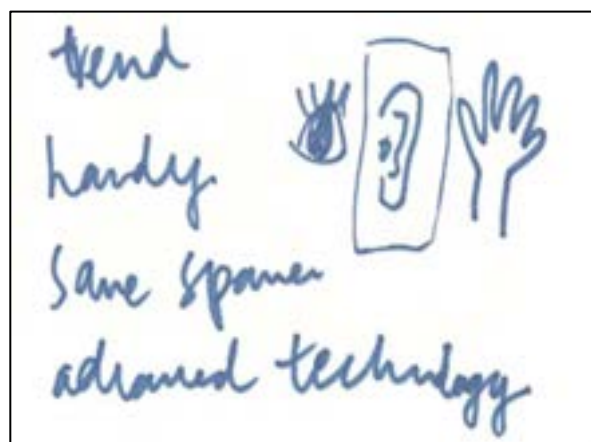 trend
handy
save spaner
advanced technology